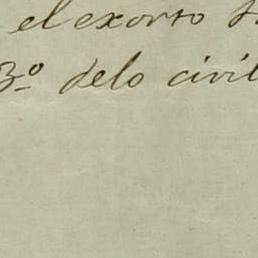 el exorto
3º delo civil